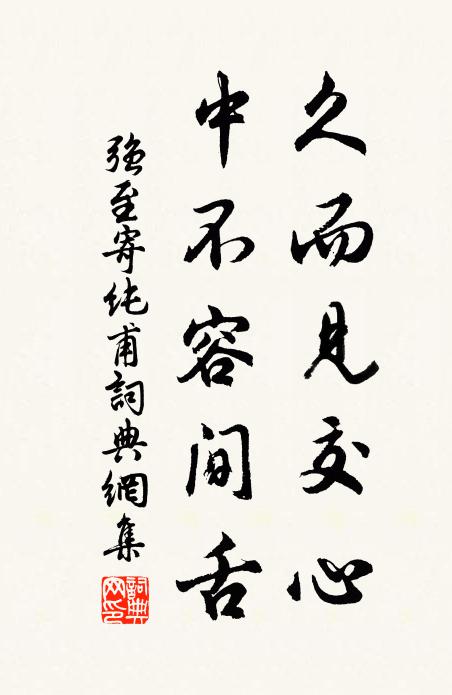 久而見交心
中不容間舌
強至寄純甫詞典網集
詞典
网印